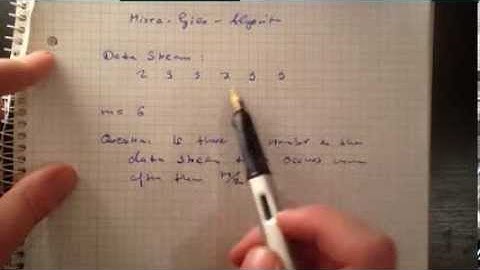 Misra - Gries - Algorit
Data Stream:
2 3 3 2 3 3
m = 6
Question: Is there a number in the
data stream that occurs more
often than m/2